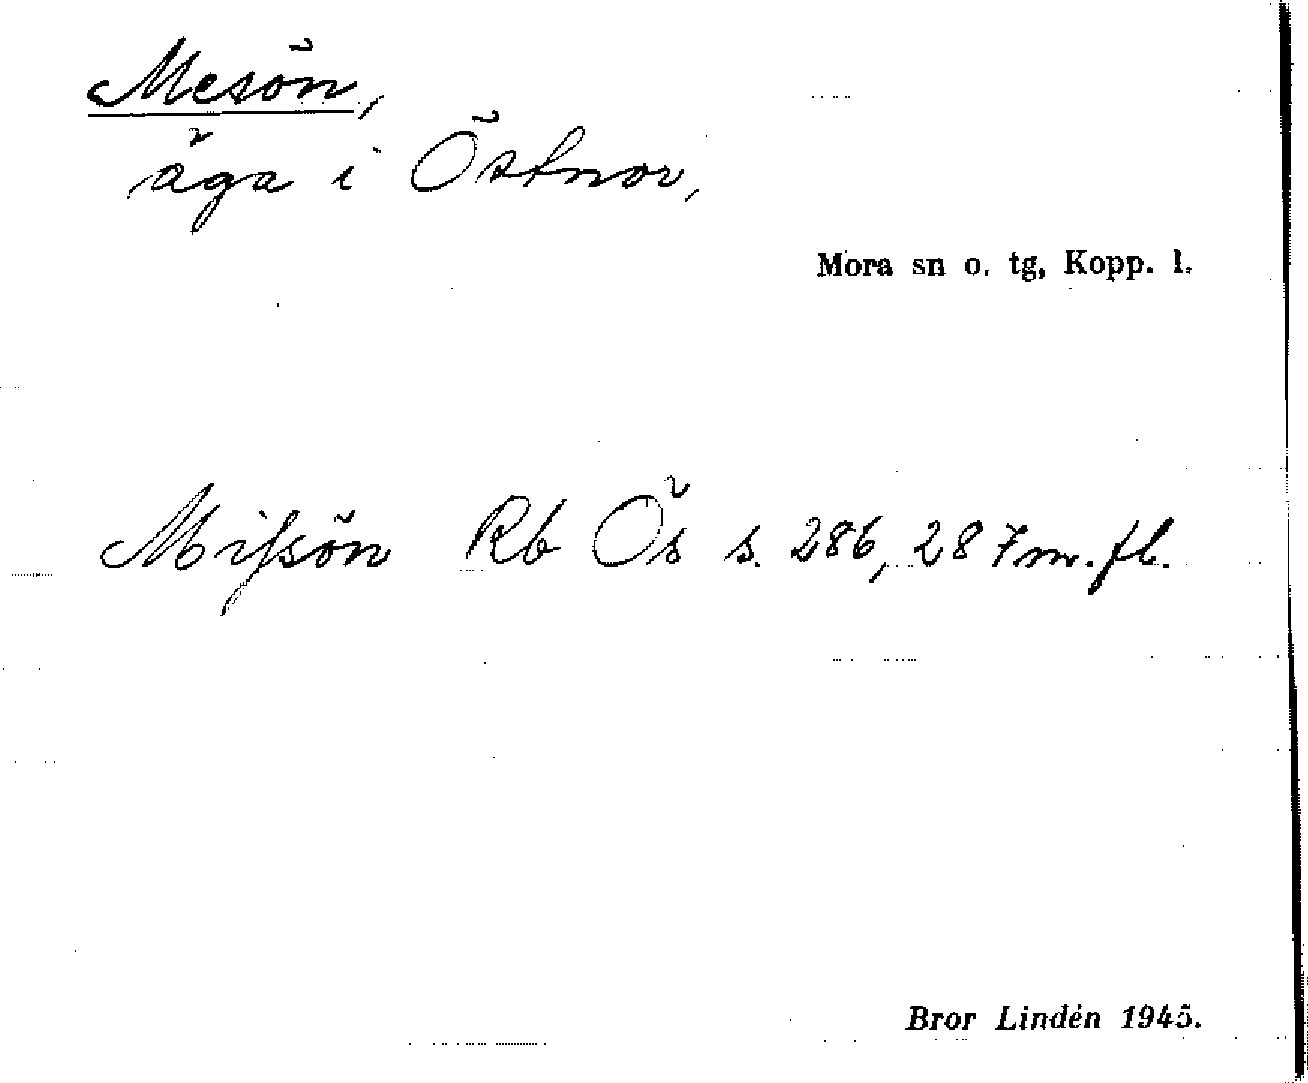 Mesön,
äga i Östnor,
Mora sn o. tg, Kopp. l.
Missön Rb Ös s. 286, 287 m. fl.
Bror Lindén 1945.